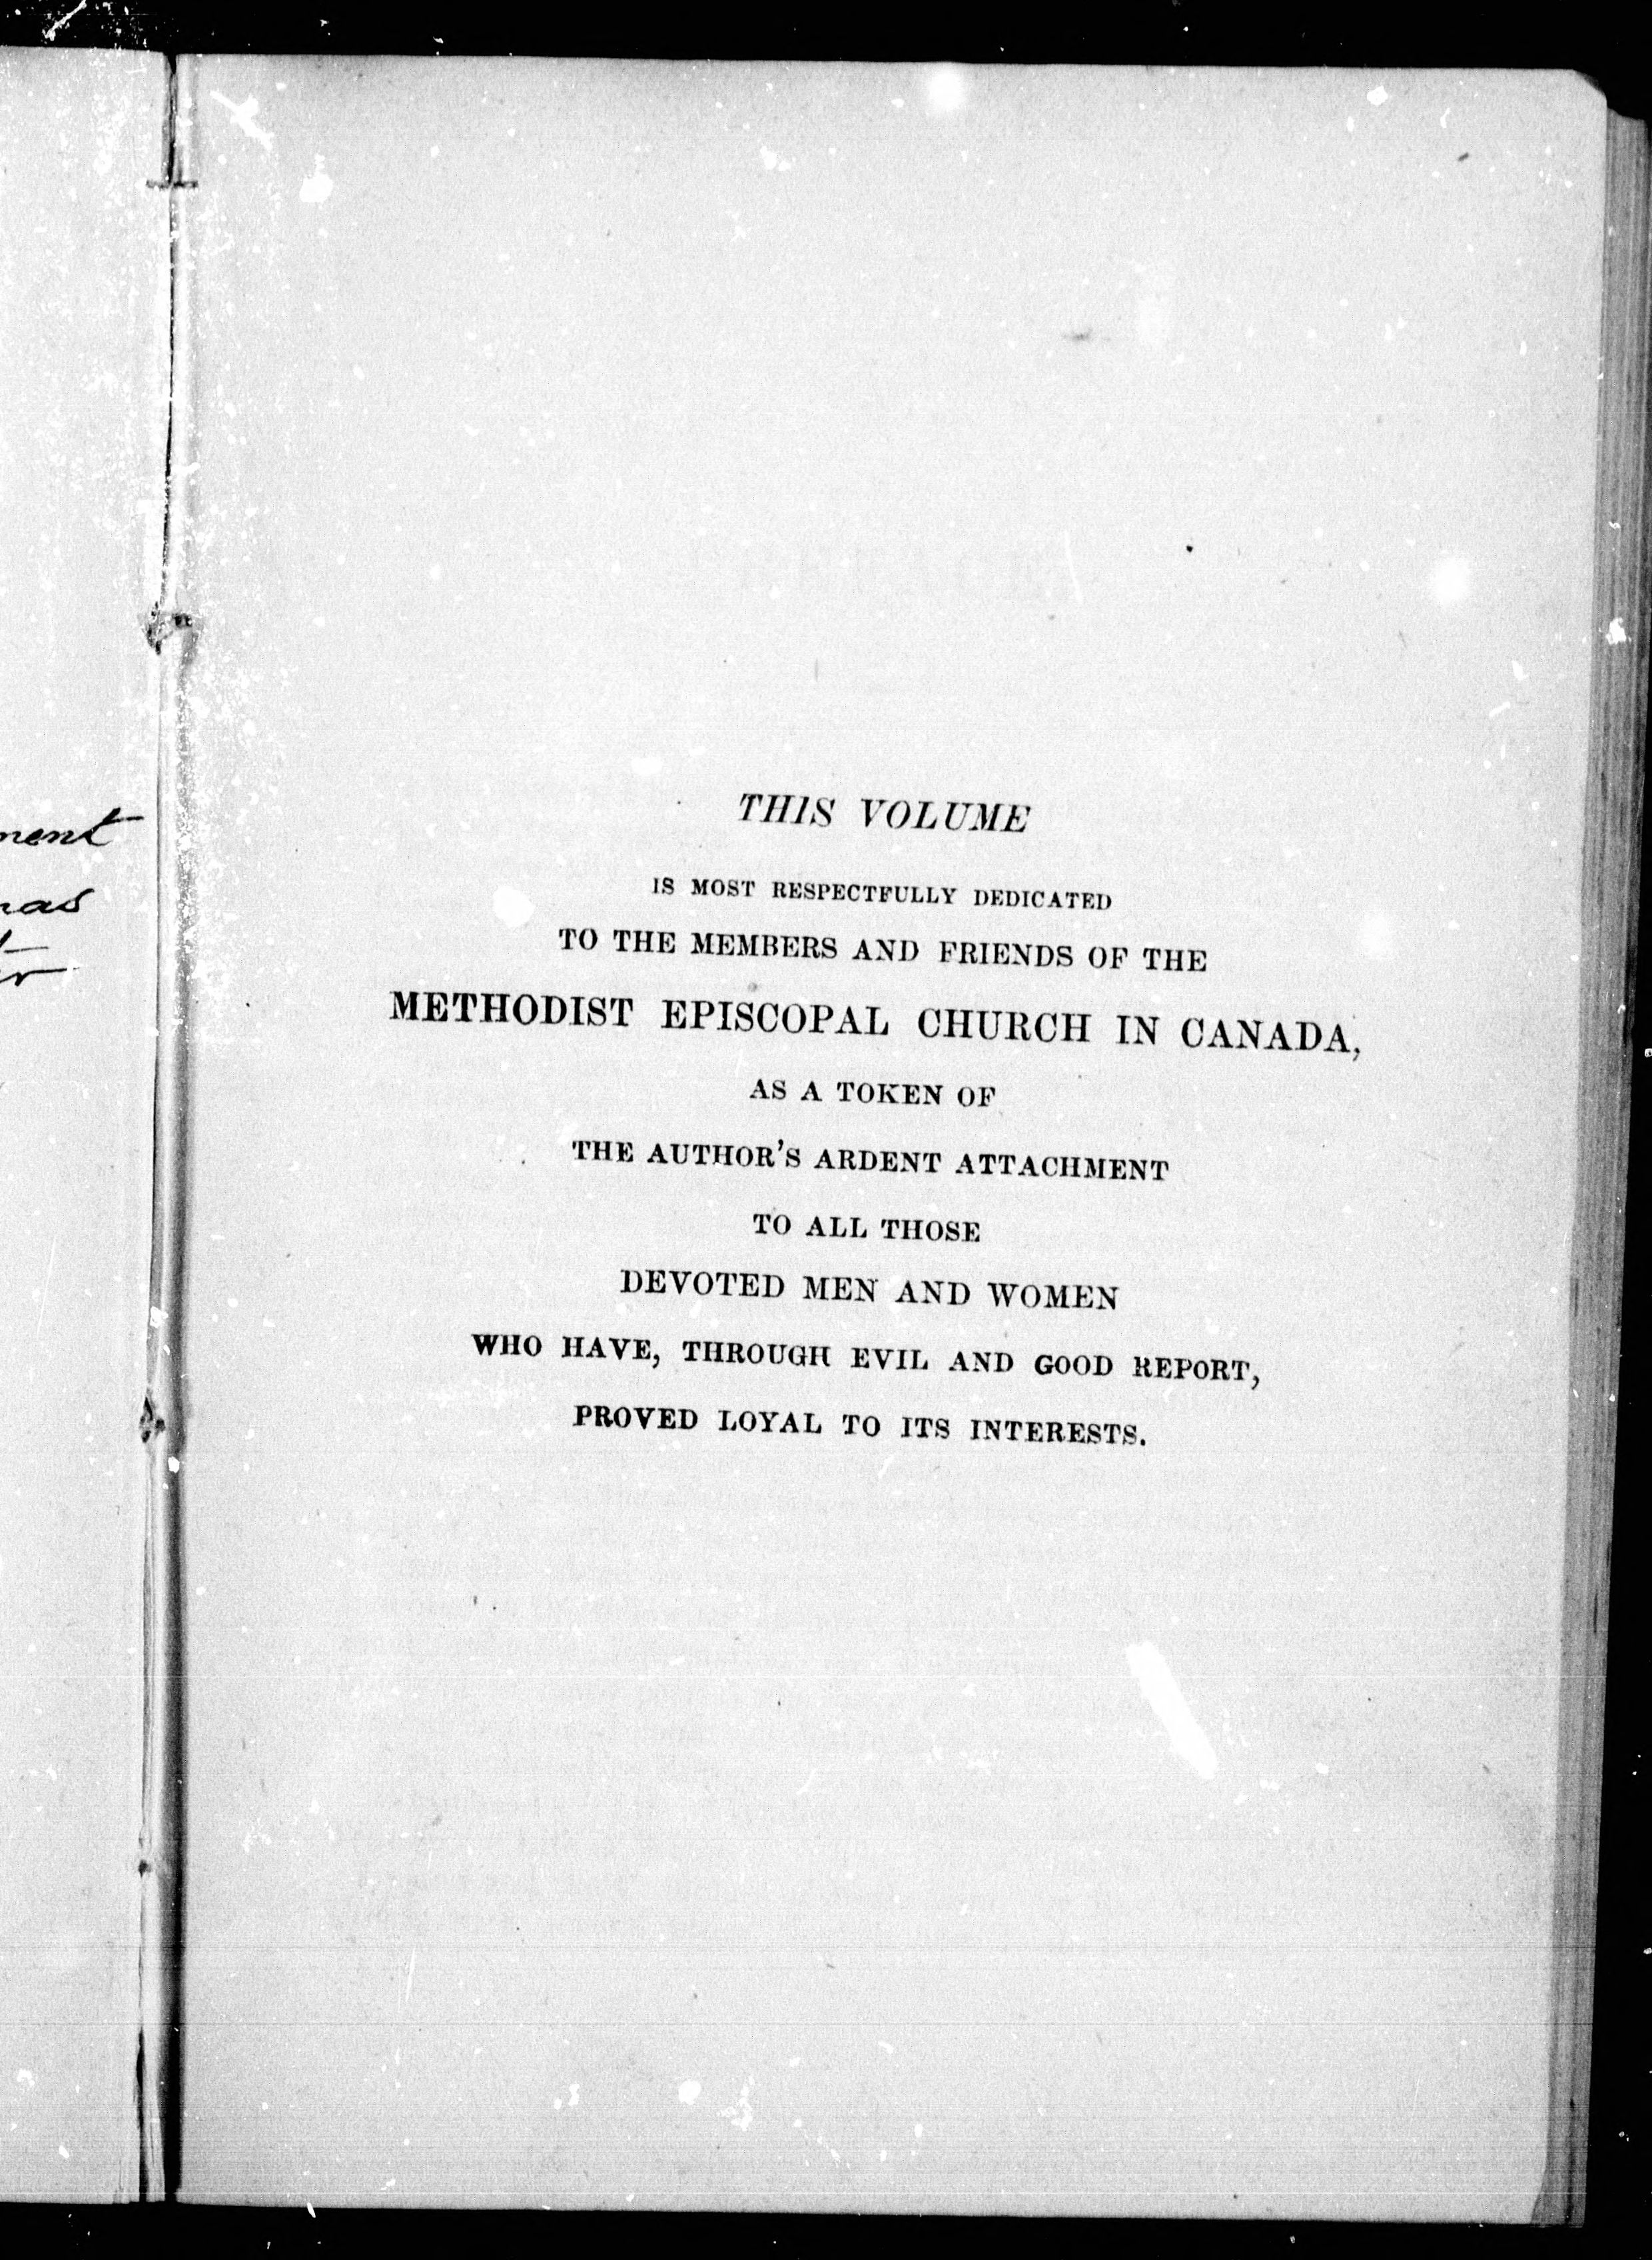 THIS VOLUME
IS MOST RESPECTFULLY DEDICATED
TO THE MEMBERS AND FRIENDS OF THE
METHODIST EPISCOPAL CHURCH IN CANADA,
AS A TOKEN OF
THE AUTHOR'S ARDENT ATTACHMENT
TO ALL THOSE
DEVOTED MEN AND WOMEN
WHO HAVE, THROUGH EVIL AND GOOD REPORT,
PROVED LOYAL TO ITS INTERESTS.